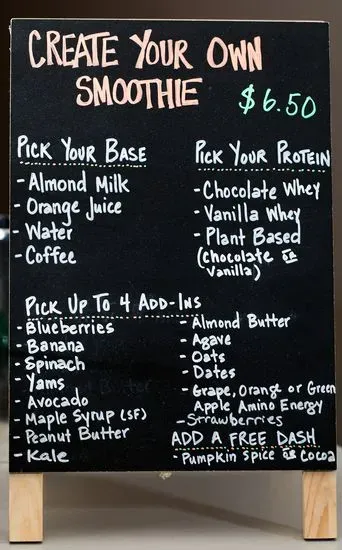 CREATE YOUR OWN
SMOOTHIE
$6.50
PICK YOUR BASE
- Almond Milk
- Orange Juice
- Water
- Coffee
PICK YOUR PROTEIN
- Chocolate Whey
- Vanilla Whey
- Plant Based
(Chocolate or
Vanilla)
PICK UP TO 4 ADD-INS
- Blueberries
- Banana
- Spinach
- Yams
- Avocado
- Maple Syrup (SF)
- Peanut Butter
- Kale
- Almond Butter
- Agave
- Oats
- Dates
- Grape, Orange or Green
Apple Amino Energy
- Strawberries
ADD A FREE DASH
- Pumpkin Spice or Cocoa